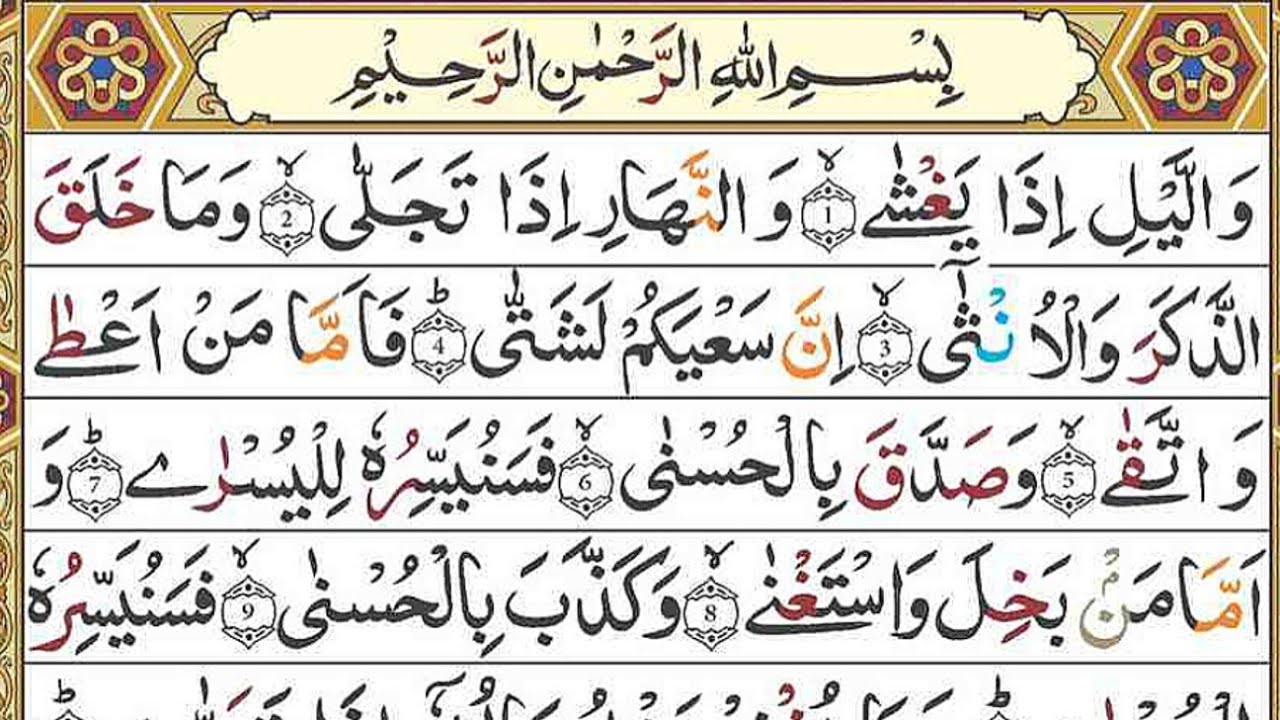 بِسْمِ اللهِ الرَّحْمٰنِ الرَّحِيْمِ
وَالَّيْلِ اِذَا يَغْشٰے ۙ‏1 وَ النَّهَارِ اِذَا تَجَلّٰى ۙ‏2 وَمَا خَلَقَ
الذَّكَرَ وَالْاُنْثٰٓى ۙ‏3 اِنَّ سَعْيَكُمْ لَشَتّٰى ؕ‏4 فَاَمَّا مَنْ اَعْطٰے
وَ اتَّقٰے ۙ‏5 وَصَدَّقَ بِالْحُسْنٰى ۙ‏6 فَسَنُيَسِّرُهٗ لِلْيُسْرٰے ؕ‏7 وَ
اَمَّا مَنْۢ بَخِلَ وَاسْتَغْنٰے ۙ‏8 وَكَذَّبَ بِالْحُسْنٰى ۙ‏9 فَسَنُيَسِّرُهٗ